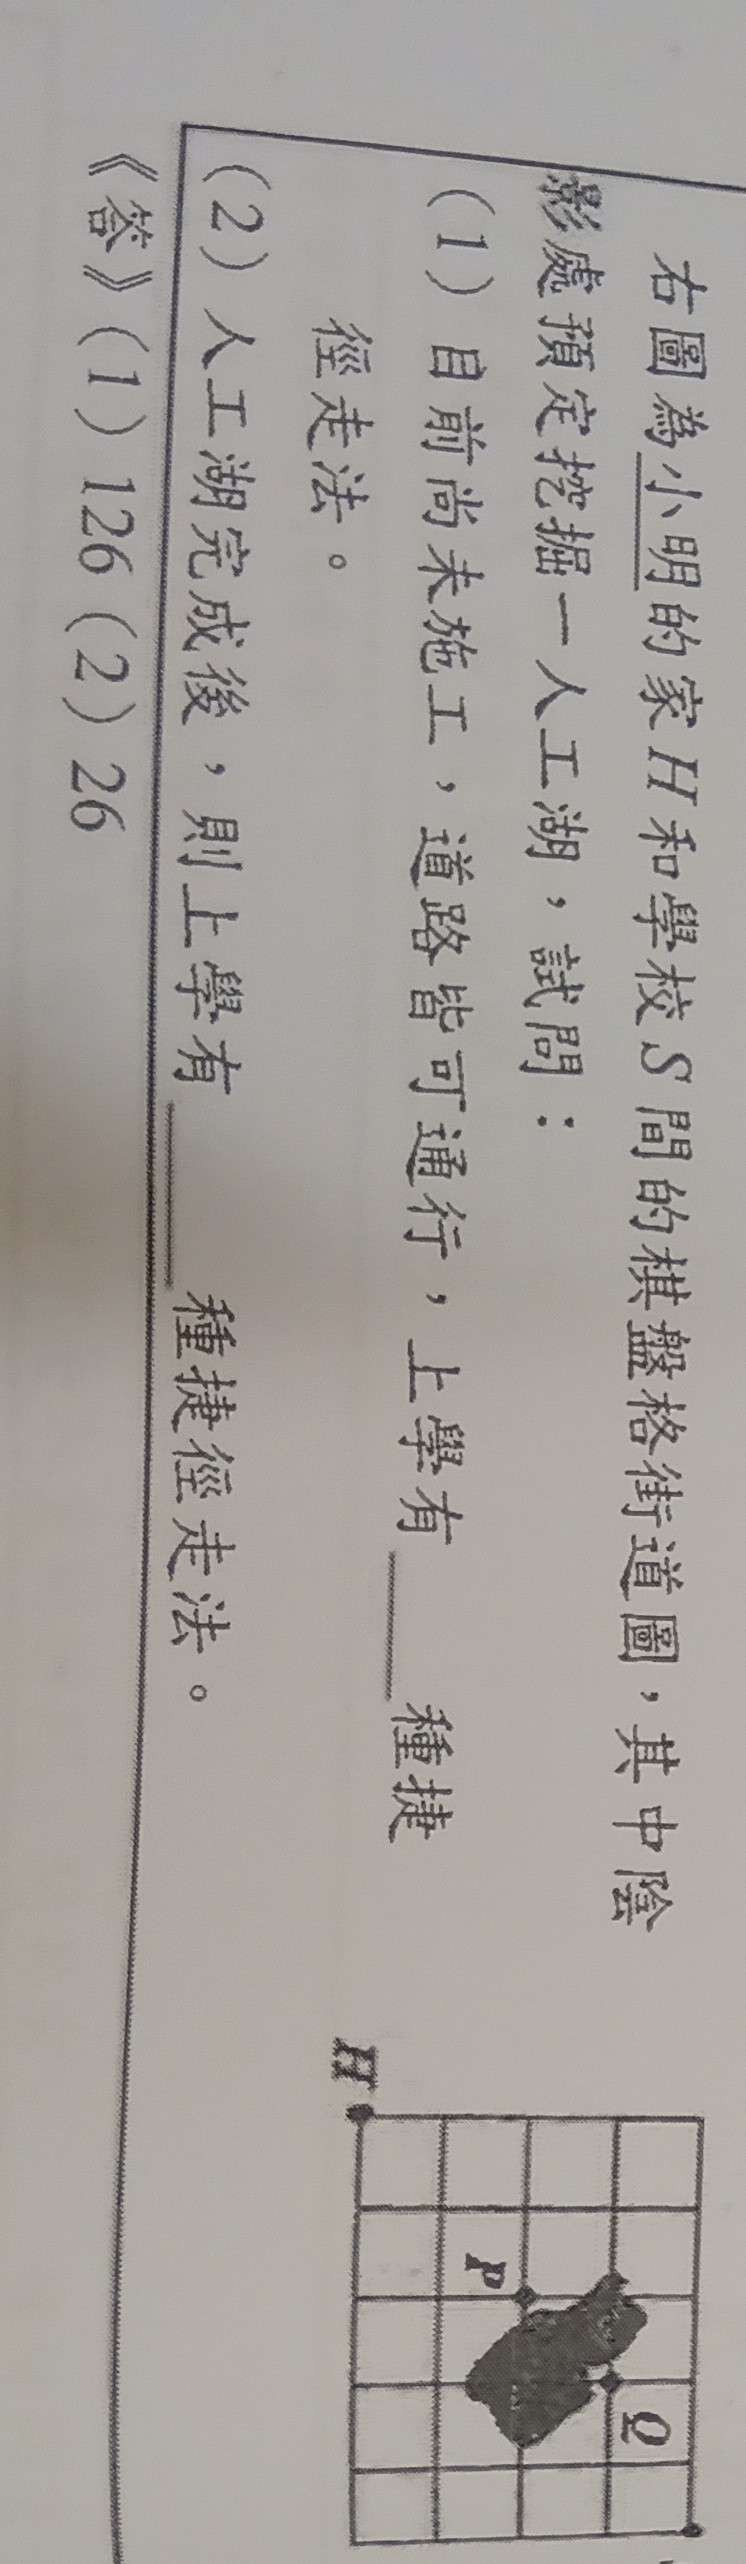 右圖為小明的家H和學校S間的棋盤格街道圖，其中陰
影處預定挖掘一人工湖，試問：
(1)目前尚未施工，道路皆可通行，上學有___種捷
徑走法。
(2)人工湖完成後，則上學有____種捷徑走法。
《答》(1)126(2)26
Q
P
H